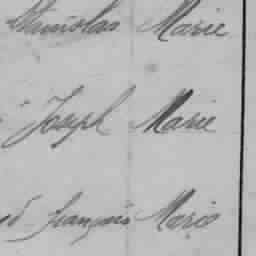 Stanislas Marie
Joseph Marie
François Marie